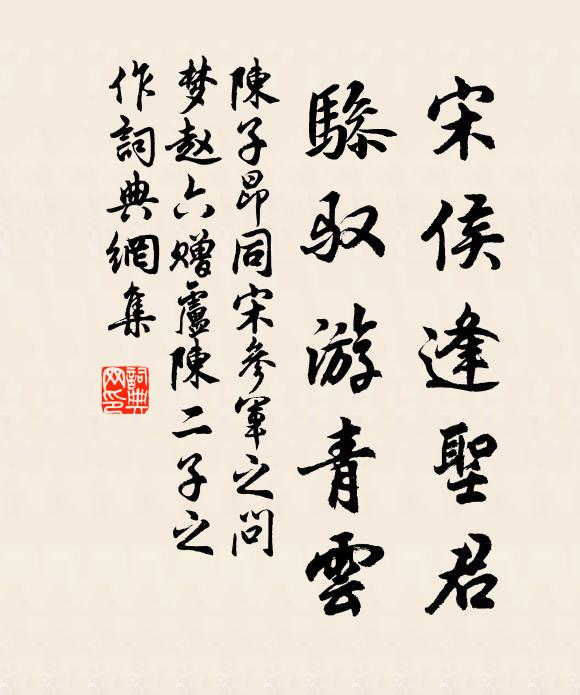 宋侯逢聖君
驂驭游青雲
陳子昂同宋參軍之問
梦赵六赠盧陳二子之
作詞典網集
詞典網印